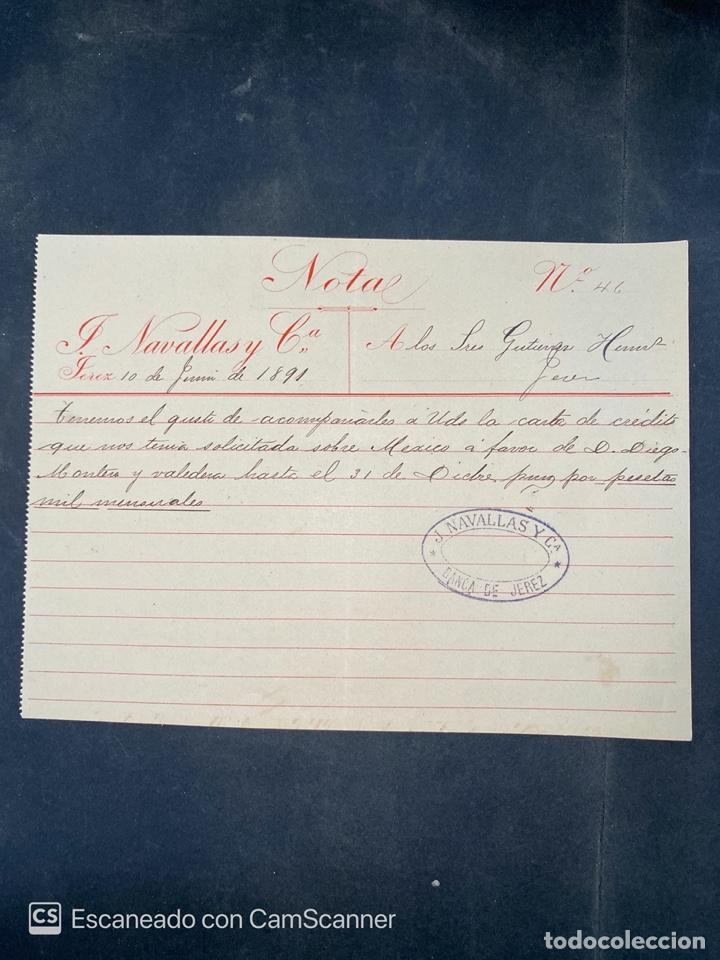 Nota
Nº 46
J. Navallas y Cª
Jerez 10 de Junio de 1891
A los Sres Gutierrez Hermˢ
Jerez
Tenemos el gusto de acompañarles á Uds la carta de crédito
que nos tenia solicitada sobre Mexico á favor de D. Diego
Montero y valedera hasta el 31 de Dicbre por pesetas
mil mensuales
J. NAVALLAS Y CA.
BANCA DE JEREZ
CS Escaneado con CamScanner
todocoleccion